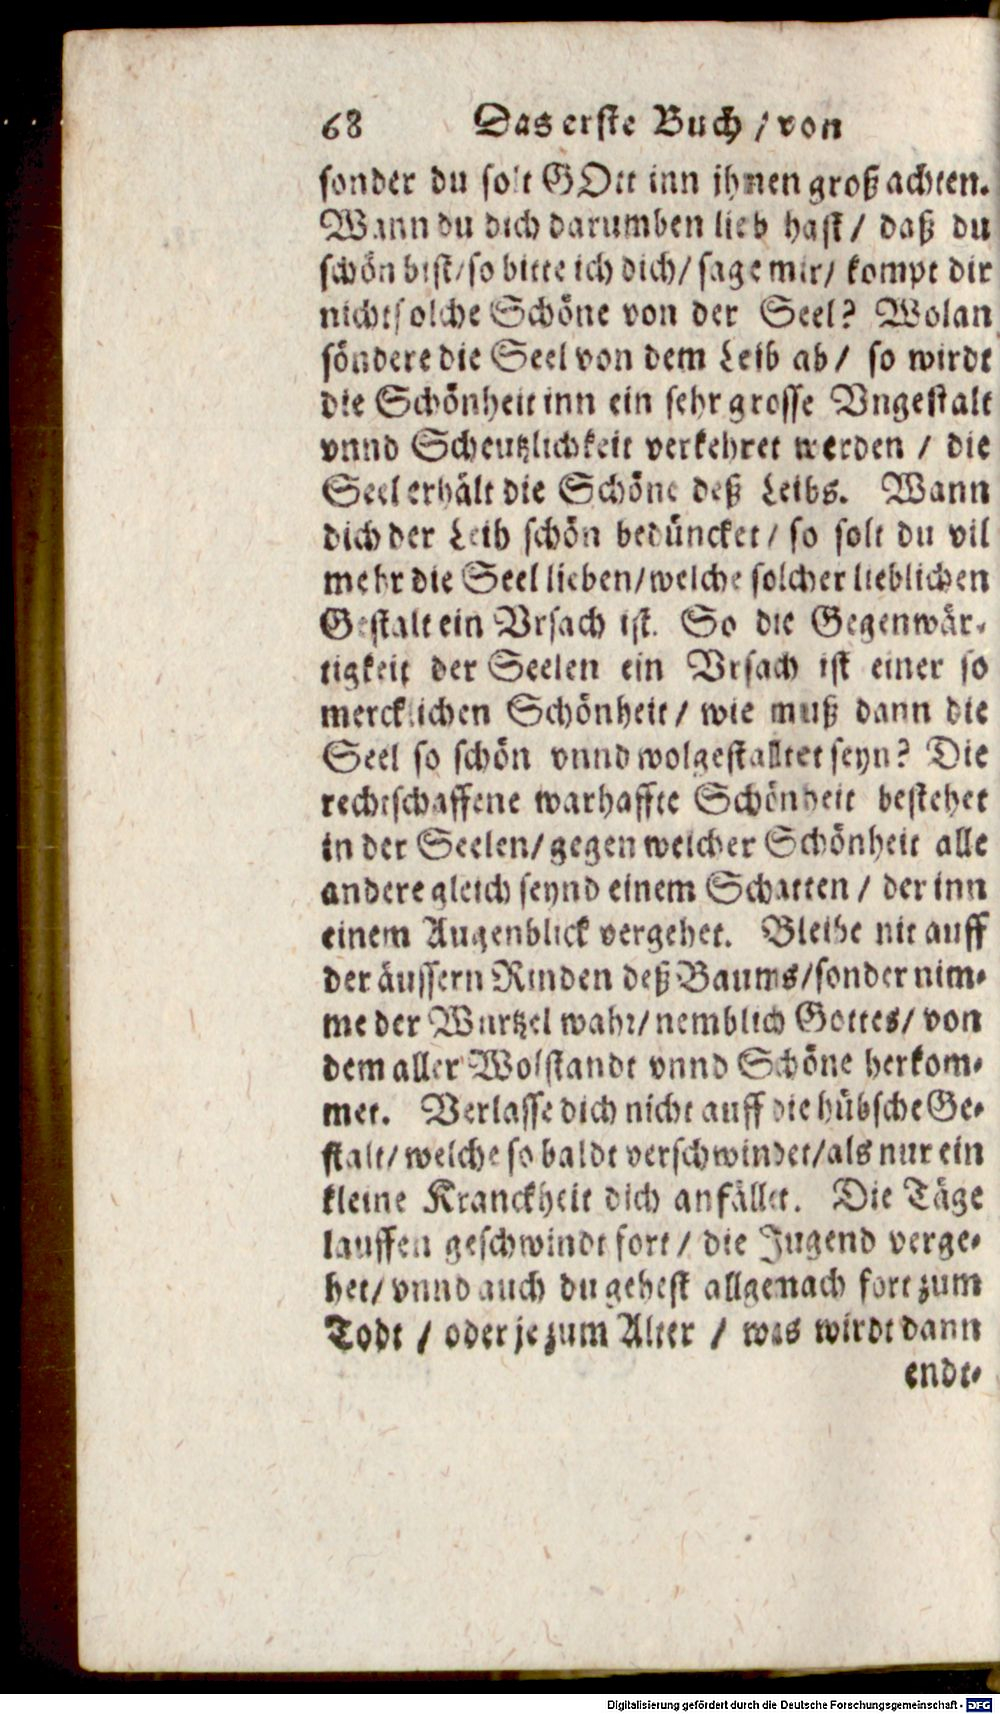 68 Das erste Buch / von
sonder du solt GOtt inn ihnen groß achten.
Wann du dich darumben lieb hast / daß du
schön bist / so bitte ich dich / sage mir / kompt dir
nicht solche Schöne von der Seel? Wolan
söndere die Seel von dem Leib ab / so wirdt
die Schönheit inn ein sehr grosse Vngestalt
vnnd Scheutzlichkeit verkehret werden / die
Seel erhält die Schöne deß Leibs. Wann
dich der Leib schön bedüncket / so solt du vil
mehr die Seel lieben / welche solcher lieblichen
Gestalt ein Vrsach ist. So die Gegenwär-
tigkeit der Seelen ein Vrsach ist einer so
mercklichen Schönheit / wie muß dann die
Seel so schön vnnd wolgestalltet seyn? Die
rechtschaffene warhaffte Schönheit bestehet
in der Seelen / gegen welcher Schönheit alle
andere gleich seynd einem Schatten / der inn
einem Augenblick vergehet. Bleibe nit auff
der äussern Rinden deß Baums / sonder nim-
me der Wurtzel wahr / nemblich Gottes / von
dem aller Wolstandt vnnd Schöne herkom-
met. Verlasse dich nicht auff die hübsche Ge-
stalt / welche so baldt verschwindet / als nur ein
kleine Kranckheit dich anfället. Die Täge
lauffen geschwindt fort / die Jugend verge-
het / vnnd auch du gehest allgenach fort zum
Todt / oder je zum Alter / was wirdt dann
endt-
Digitalisierung gefördert durch die Deutsche Forschungsgemeinschaft - DFG